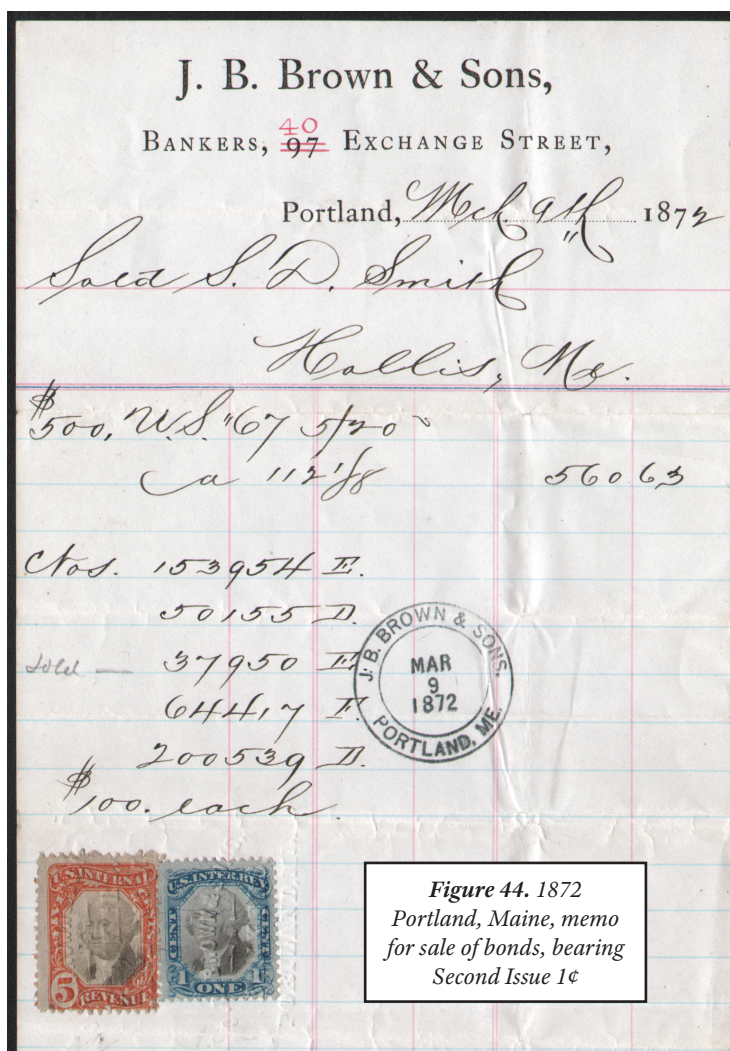 J. B. Brown & Sons,
40
BANKERS, 97 EXCHANGE STREET,
Portland, Mch. 9th 1872
Sold S. D. Smith
Hollis, Me.
$500, U.S. '67 5/20
a 112 1/8 560 63
Nos. 153954 E.
50155 D.
Sold — 37950 E
64417 F.
200539 D.
$100. each.
J. B. BROWN & SONS.
MAR
9
1872
PORTLAND, ME.
U.S. INTERNAL
FIVE CENTS
5
REVENUE
U.S. INTER. REV.
CENT CENT
1 ONE 1
BROWN &
Figure 44. 1872
Portland, Maine, memo
for sale of bonds, bearing
Second Issue 1¢